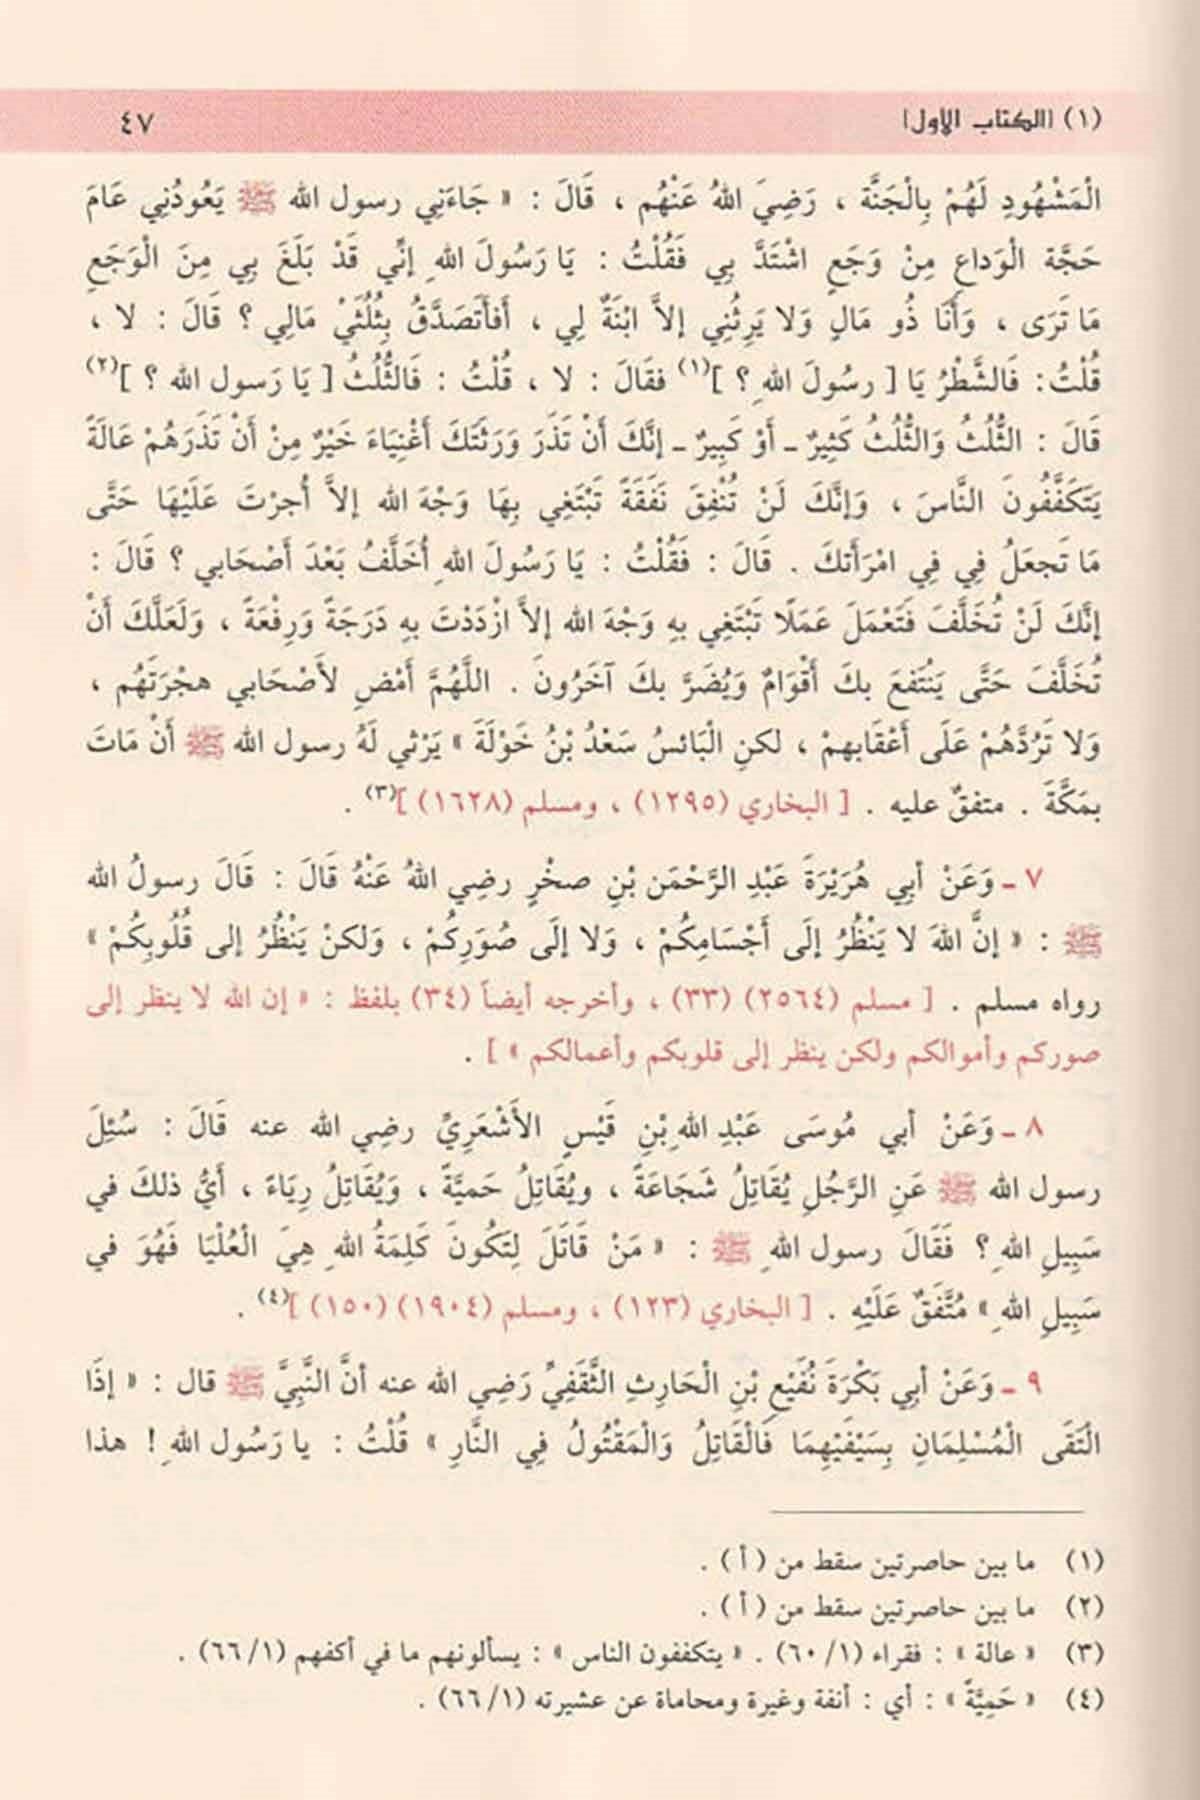 (١) [الكتاب الأول] ٤٧
الْمَشْهُودِ لَهُمْ بِالْجَنَّة ، رَضِيَ اللهُ عَنْهُم ، قَالَ : « جَاءَنِي رسول الله ﷺ يَعُودُنِي عَامَ
حَجَّة الْوَدَاعِ مِنْ وَجَعٍ اشْتَدَّ بِي فَقُلْتُ : يَا رَسُولَ اللهِ إنِّي قَدْ بَلَغَ بِي مِنَ الْوَجَعِ
مَا تَرَى ، وَأَنَا ذُو مَالٍ وَلا يَرِثُنِي إلاَّ ابْنَةٌ لِي ، أَفأَتَصَدَّقُ بِثُلُثَيْ مَالِي ؟ قَالَ : لا ،
قُلْتُ : فَالشَّطْرُ يَا [ رسُولَ اللهِ ؟ ](١) فقَالَ : لا ، قُلْتُ : فَالثُّلُثُ [ يَا رَسول الله ؟ ](٢)
قَالَ : الثُّلُثُ وَالثُّلُثُ كَثِيرٌ ـ أَوْ كَبِيرٌ ـ إنَّكَ أَنْ تَذَرَ وَرَثَتَكَ أَغْنِيَاءَ خَيْرٌ مِنْ أَنْ تَذَرَهُمْ عَالَةً
يَتَكَفَّفُونَ النَّاسَ ، وَإنَّكَ لَنْ تُنْفِقَ نَفَقَةً تَبْتَغِي بِهَا وَجْهَ الله إلاَّ أُجِرْتَ عَلَيْهَا حَتَّى
مَا تَجعَلُ فِي فِي امْرَأَتكَ . قَالَ : فَقُلْتُ : يَا رَسُولَ اللهِ أُخَلَّفُ بَعْدَ أَصْحَابي ؟ قَالَ :
إنَّكَ لَنْ تُخَلَّفَ فَتَعْمَلَ عَمَلًا تَبْتَغِي بهِ وَجْهَ الله إلاَّ ازْدَدْتَ بهِ دَرَجَةً وَرِفْعَةً ، وَلَعَلَّكَ أَنْ
تُخَلَّفَ حَتَّى يَنْتَفعَ بكَ أَقْوَامٌ وَيُضَرَّ بكَ آخَرُونَ . اللَّهُمَّ أَمْضِ لأَصْحَابي هجْرَتَهُم ،
وَلا تَرُدَّهُمْ عَلَى أَعْقَابهمْ ، لكنِ الْبَائسُ سَعْدُ بْنُ خَوْلَةَ » يَرْثي لَهُ رسول الله ﷺ أَنْ مَاتَ
بمَكَّةَ . متفقٌ عليه . [ البخاري (١٢٩٥) ، ومسلم (١٦٢٨) ](٣) .
٧ ـ وَعَنْ أبِي هُرَيْرَةَ عَبْدِ الرَّحْمَن بْنِ صخْرٍ رضِي اللهُ عَنْهُ قَالَ : قَالَ رسولُ الله
ﷺ : « إنَّ اللهَ لا يَنْظُرُ إلَى أَجْسَامِكُمْ ، وَلا إلَى صُوَرِكُمْ ، وَلكنْ يَنْظُرُ إلى قُلُوبِكُمْ »
رواه مسلم . [ مسلم (٢٥٦٤) (٣٣) ، وأخرجه أيضاً (٣٤) بلفظ : « إن الله لا ينظر إلى
صوركم وأموالكم ولكن ينظر إلى قلوبكم وأعمالكم » ] .
٨ ـ وَعَنْ أبي مُوسَى عَبْدِ اللهِ بْنِ قَيْسٍ الأَشْعَرِيِّ رضِي الله عنه قَالَ : سُئِلَ
رسول الله ﷺ عَنِ الرَّجُلِ يُقَاتِلُ شَجَاعَةً ، ويُقَاتِلُ حَميَّةً ، وَيُقَاتِلُ رِيَاءً ، أَيُّ ذلكَ في
سَبِيلِ اللهِ ؟ فَقَالَ رسول اللهِ ﷺ : « مَنْ قَاتَلَ لِتَكُونَ كَلِمَةُ اللهِ هِيَ الْعُلْيَا فَهُوَ في
سَبِيلِ اللهِ » مُتَّفَقٌ عَلَيْهِ . [ البخاري (١٢٣) ، ومسلم (١٩٠٤) (١٥٠) ](٤) .
٩ ـ وَعَنْ أبِي بَكْرَةَ نُفَيْعِ بْنِ الْحَارِثِ الثَّقَفِيِّ رَضِي الله عنه أنَّ النَّبِيَّ ﷺ قال : « إذَا
الْتَقَى الْمُسْلِمَانِ بِسَيْفَيْهِمَا فَالْقَاتِلُ وَالْمَقْتُولُ فِي النَّارِ » قُلْتُ : يا رَسُول اللهِ ! هذا
(١) ما بين حاصرتين سقط من ( أ ) .
(٢) ما بين حاصرتين سقط من ( أ ) .
(٣) « عالة » : فقراء (١/ ٦٠) . « يتكففون الناس » : يسألونهم ما في أكفهم (١/ ٦٦) .
(٤) « حَمِيَّةً » : أي : أنفة وغيرة ومحاماة عن عشيرته (١/ ٦٦) .